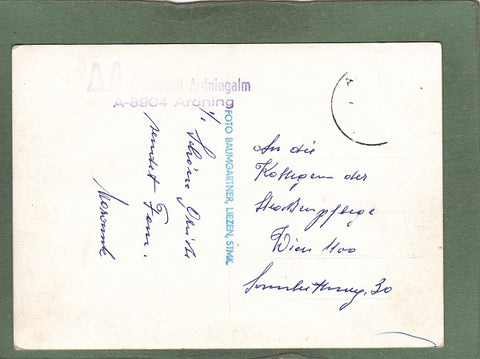 Sporthotel Ardningalm
A-8904 Ardning
FOTO BAUMGARTNER, LIEZEN, STMK.
Schöne Grüße
sendet Fam.
An die
Kollegen der
Straßenpflege
Wien 1100
30